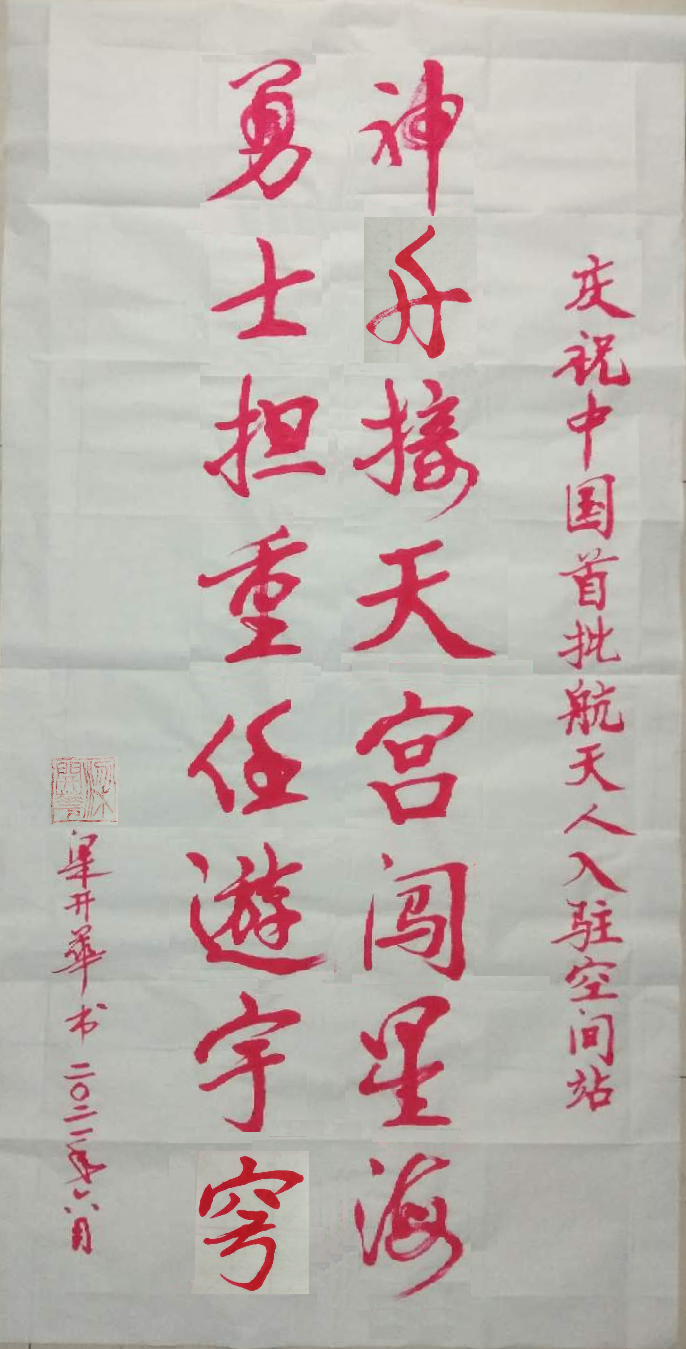 庆祝中国首批航天人入驻空间站
神舟接天宫闯星海
勇士担重任遊宇穹
梁开華书二〇二一年六月